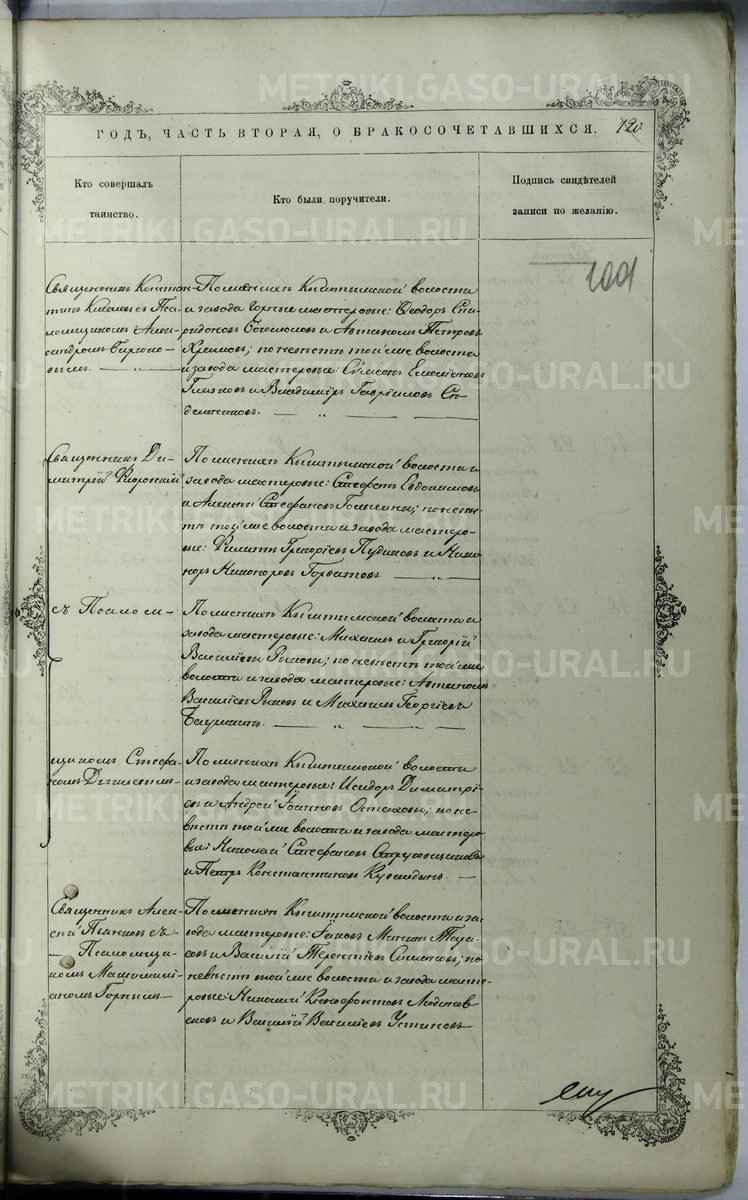 ГОДЪ, ЧАСТЬ ВТОРАЯ, О БРАКОСОЧЕТАВШИХСЯ.
Кто совершалъ
таинство.
Кто были поручители.
Подпись свидѣтелей
записи по желанію.
Священникъ Констан-
тинъ съ Пса-
ломщикомъ Алек-
сандромъ Бирюко-
вымъ.
По женихѣ Кыштымской волости
и завода горные мастеровые: Ѳеодоръ Спи-
ридоновъ Богомоловъ и Автаномъ Петровъ
по невѣстѣ той же волости
и завода мастеровые: Сѵмеонъ Емеліановъ
Глазковъ и Владиміръ Гавріиловъ Си-
дельниковъ.
Священникъ Ди-
митрій Флоровскій
По женихѣ Кыштымской волости и
завода мастеровые: Стефанъ Евдокимовъ
и Алексій Стефановъ Голычевы; по невѣс-
тѣ той же волости и завода мастеро-
вые: Филиппъ Григоріевъ Пудиковъ и Ника-
норъ Никаноровъ Горбатовъ.
съ Псалом-
По женихѣ Кыштымской волости и
завода мастеровые: Михаилъ и Григорій
Василіевы Рыковы; по невѣстѣ той же
волости и завода мастеровые: Автаномъ
Василіевъ Рыковъ и Михаилъ Георгіевъ
щикомъ Стефа-
номъ Дягилевымъ
По женихѣ Кыштымской волости
и завода мастеровые: Исидоръ Димитрі-
евъ и Андрей Іоанновъ Остаховы; по не-
вѣстѣ той же волости и завода мастеро-
вые: Николай Стефановъ Струговщиковъ
и Петръ Константиновъ Кувалдинъ.
Священникъ Алек-
сій Пьянковъ съ
Псаломщи-
комъ Максимилі-
аномъ Горнымъ
По женихѣ Кыштымской волости и за-
вода мастеровые: Іаковъ Мининъ Тара-
совъ и Василій Терентіевъ по
невѣстѣ той же волости и завода масте-
ровые: Николай Ксенофонтовъ
и Василій Василіевъ Устиновъ
METRIKI.GASO-URAL.RU